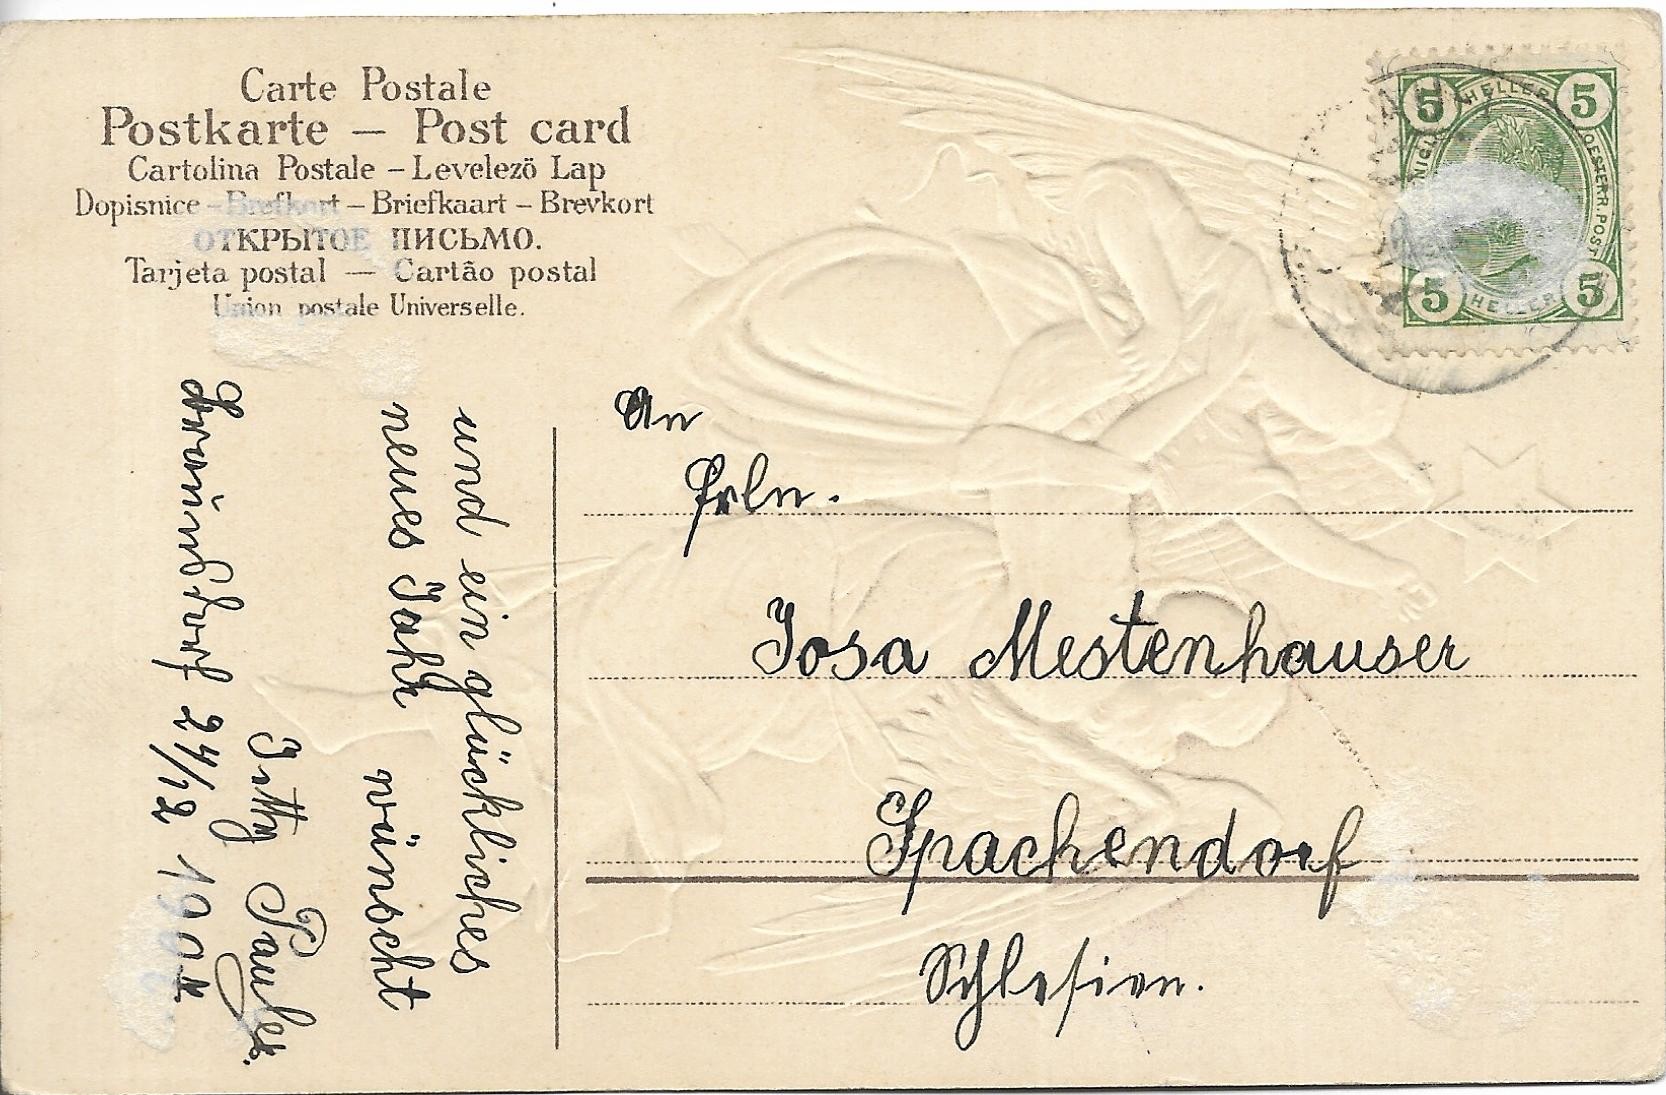 Carte Postale
Postkarte – Post card
Cartolina Postale – Levelezö Lap
Dopisnice – Brefkort – Briefkaart – Brevkort
ОТКРЫТОЕ ПИСЬМО.
Tarjeta postal — Cartão postal
Union postale Universelle.
5 HELLER 5
OESTERR. POST
5 HELLER 5
und ein glückliches
neues Jahr wünscht
Pauler.
24/12 190
An
Frln.
Josa Mestenhauser
Spachendorf
Schlesien.